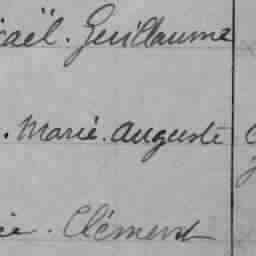 caël. Guillaume
. Marie. Auguste
ie. Clément